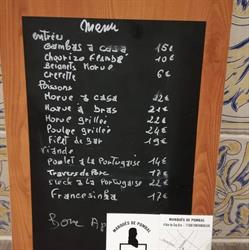 Menu
entrées
Gambas a casa 15€
Chourizo Flambé 10€
Beignets Morue
Crevette 6€
Poissons
Morue a casa 22€
Morue à bras 21€
Morue grillée 22€
Poulpe grillée 24€
Filet de Bar 19€
Viande
Poulet a la Portugaise 14€
Travers de Porc 17€
Steck a la Portugaise 22€
Francesinha 17€
Bon Ap
MARQUÊS DE POMBAL
MARQUÊS DE POMBAL